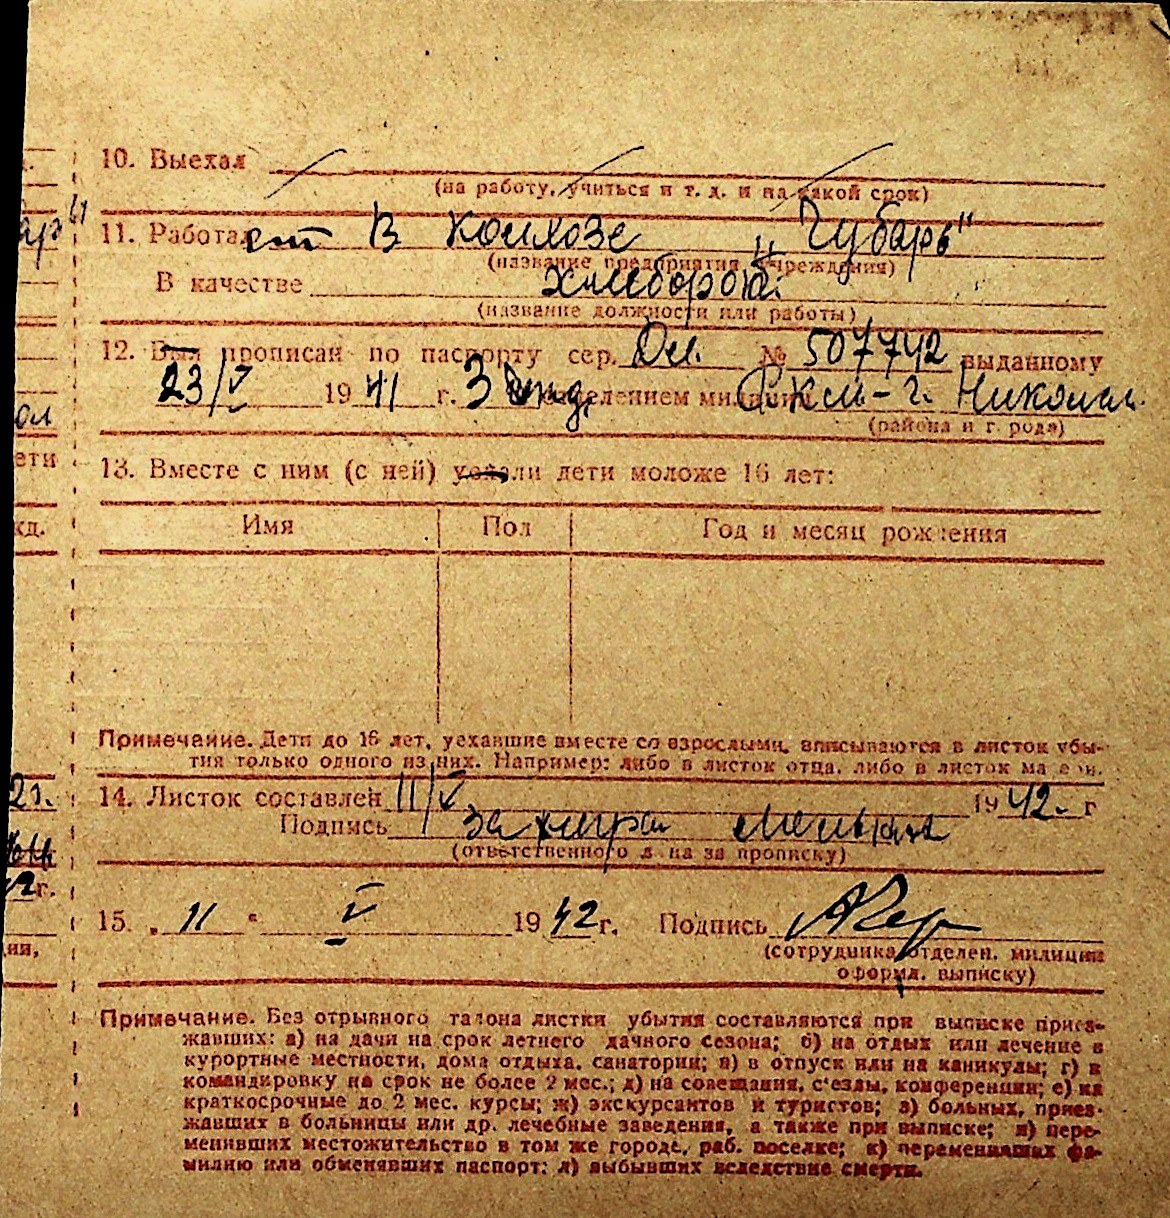 10. Выехал
(на работу, учиться и т. д. и на какой срок)
11. Работает в колхозе „Чубарь"
(название предприятия, учреждения)
В качестве хлебороба.
(название должности или работы)
12. Был прописан по паспорту сер. № 507742 выданному
23/V 1941 г. 3 отд. отделением милиции РКМ - г. Никол
(района и города)
13. Вместе с ним (с ней) уехали дети моложе 16 лет:
Имя Пол Год и месяц рождения
Примечание. Дети до 16 лет, уехавшие вместе со взрослыми, вписываются в листок убы-
тия только одного из них. Например: либо в листок отца, либо в листок матери.
14. Листок составлен 11/V 1942. г
Подпись
(ответственного л-на за прописку)
15. „11" V 1942 г. Подпись
(сотрудника отделен. милиции
оформл. выписку)
Примечание. Без отрывного талона листки убытия составляются при выписке приез-
жавших: а) на дачи на срок летнего дачного сезона; б) на отдых или лечение в
курортные местности, дома отдыха, санатории; в) в отпуск или на каникулы; г) в
командировку на срок не более 2 мес.; д) на совещания, с'езды, конференции; е) на
краткосрочные до 2 мес. курсы; ж) экскурсантов и туристов; з) больных, приез-
жавших в больницы или др. лечебные заведения, а также при выписке; и) пере-
менивших местожительство в том же городе, раб. поселке; к) переменивших фа-
милию или обменявших паспорт; л) выбывших вследствие смерти.